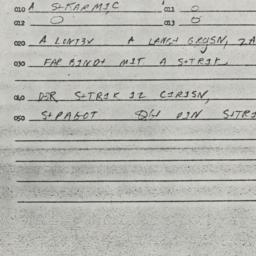 010 A S+KARMIC 011 0
012 0 013 0
020 A LONTZV A LANG+ GROSN, ZA
030 FAR BINDT MIT A S+TRIK
040 DER S+TRIK IZ CIRISN,
050 S+PAGOT DIN S+TRI